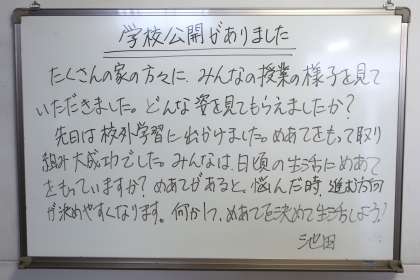 学校公開がありました
たくさんの家の方々に、みんなの授業の様子を見て
いただきました。どんな姿を見てもらえましたか?
先日は校外学習に出かけました。めあてをもって取り
組み大成功でした。みんなは、日頃の生活にめあて
をもっていますか?めあてがあると、悩んだ時、進む方向
が決めやすくなります。何か1つ、めあてを決めて生活しよう!
池田